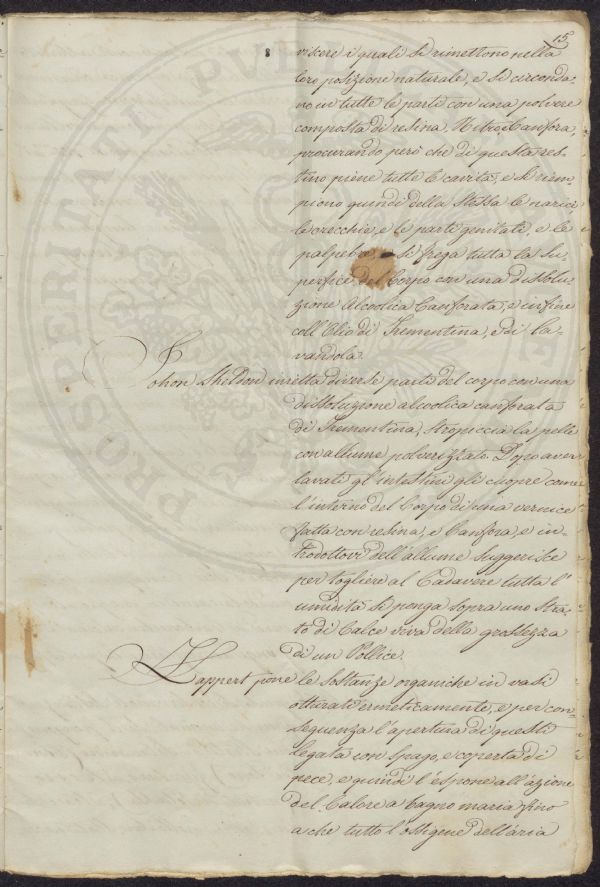 15
viscere i quali si rimettono nella
loro posizione naturale, e si circonda-
no in tutte le parti con una polvere
composta di resina, Nitro, Canfora,
procurando però che di questa res-
tino piene tutte le cavità, e si riem-
piono quindi della stessa le narici
le orecchie, e le parti genitali, e le
palpebre, si frega tutta la su-
perfice del Corpo con una dissolu-
zione Alcoolica Canforata, e infine
coll'Olio di Trementina, e di la-
vandola.
Johon Sheldon inietta diverse parti del corpo con una
dissoluzione alcoolica canforata
di Trementina, stropiccia la pelle
con allume polverizzato. Dopo aver
lavati gl'intestini gli cuopre come
l'interno del Corpo di una vernice
fatta con resina, e Canfora, e in-
trodottovi dell'allume suggerisce
per togliere al Cadavere tutta l'
umidità si ponga sopra uno stra-
to di Calce viva della grossezza
di un Pollice.
Lappert pone le sostanze organiche in vasi
otturati ermeticamente, e per con-
seguenza l'apertura di questi
legata con spago, e coperta di
pece, e quindi l'espone all'azione
del Calore a bagno maria fino
a che tutto l'ossigene dell'aria
PROSPERITATI PVBL